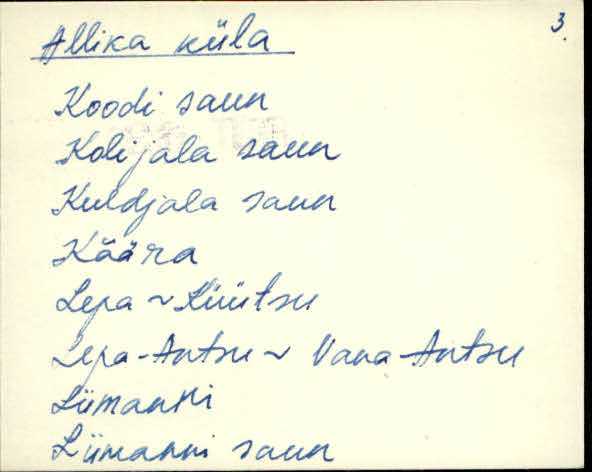 3.
Allika küla
Koodi saun
Kolijala saun
Kuldjala saun
Käära
Lepa ~ Küütsu
Lepa-Antsu ~ Vana-Antsu
Liimanni
Liimanni saun